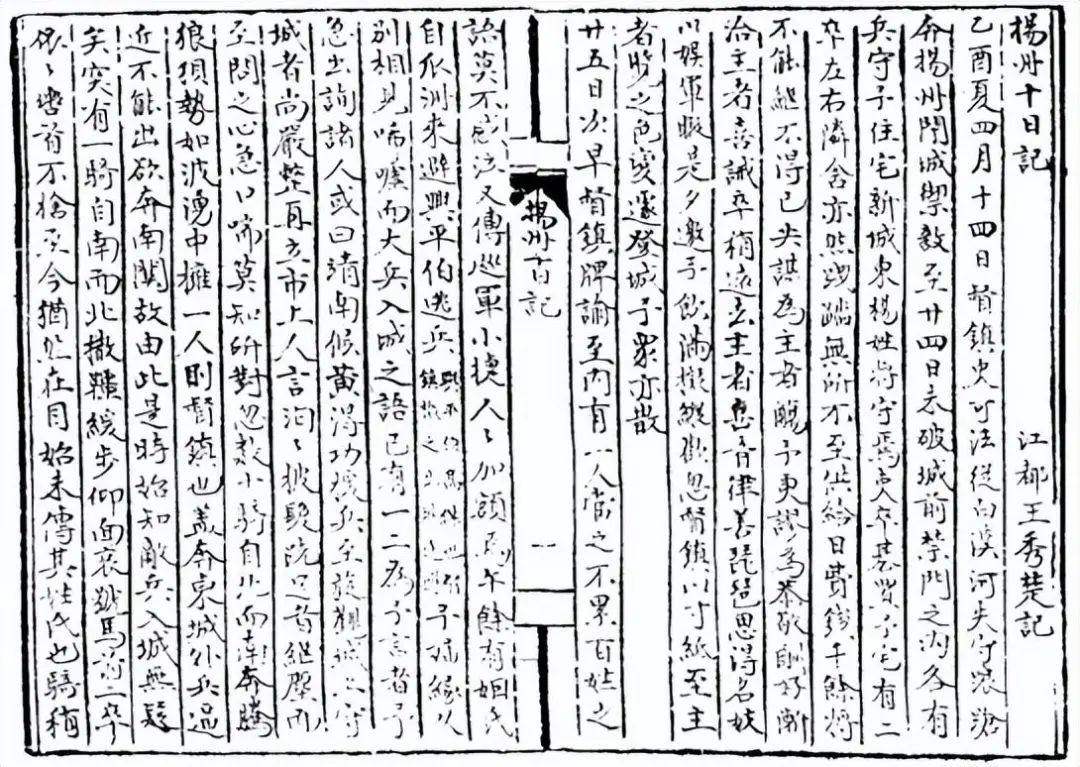 揚州十日記　江都王秀楚記
乙酉夏四月十四日督鎮史可法從白洋河失守踉蹌
奔揚州閉城禦敵至廿四日未破城前禁門之內各有
兵守予住宅新城東楊姓將守焉吏卒碁置予宅有二
卒左右隣舍亦然踐踏無所不至供給日費錢千餘將
不能繼不得已共謀為主者觴予更謬為恭敬酬好漸
洽主者喜誡卒稍遠去主者喜音律善琵琶思得名妓
以娛軍暇是夕邀予飲滿擬縱歡忽督鎮以寸紙至主
者覽之色變遽登城予眾亦散
廿五日次早督鎮牌諭至內有一人當之不累百姓之
揚州十日記
一
語莫不感泣又傳巡軍小捷人々加額焉午餘有姻氏
自瓜洲來避興平伯逃兵興平伯高傑也督鎮檄之出城遠避予婦緣久
別相見唏噓而大兵入城之語已有一二為予言者予
急出詢諸人或曰靖南候黃得功援兵至旋觀城上守
城者尚嚴整再至市上人言洶々披髮跣足者繼塵而
至問之心急口喘莫知所對忽數小騎自北而南奔騰
狼狽勢如波湧中擁一人則督鎮也蓋奔東城外兵逼
近不能出欲奔南關故由此是時始知敵兵入城無疑
矣突有一騎自南而北撒韁緩步仰面哀號馬前二卒
依々轡首不捨至今猶然在目始未傳其姓氏也騎稍